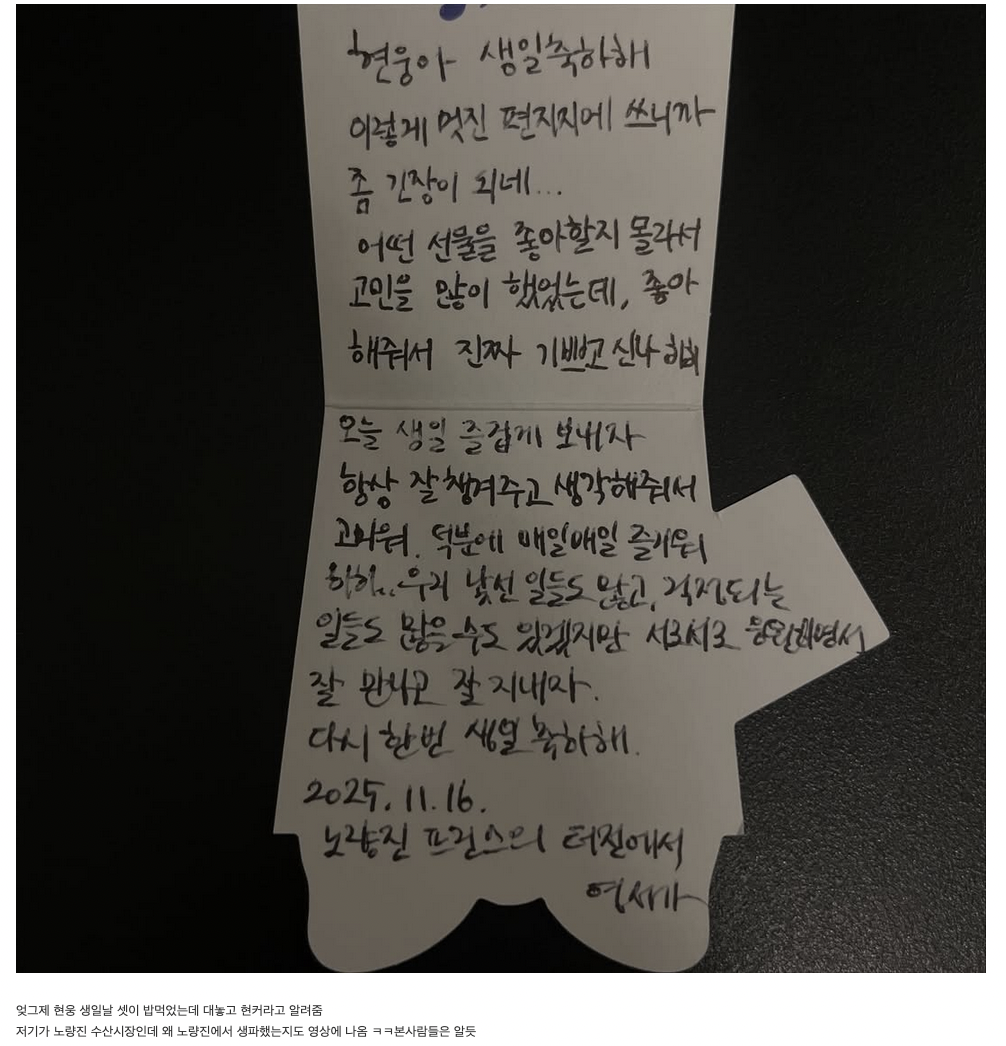 현웅아 생일축하해
이렇게 멋진 편지지에 쓰니까
좀 긴장이 되네...
어떤 선물을 좋아할지 몰라서
고민을 많이 했었는데, 좋아
해줘서 진짜 기쁘고 신나
오늘 생일 즐겁게 보내자
항상 잘 챙겨주고 생각해줘서
고마워. 덕분에 매일매일 즐거워
히히.. 우리 낯선 일들도 많고, 걱정되는
일들도 많을 수도 있겠지만 서로서로 응원하면서
잘 만나고 잘 지내자.
다시 한번 생일 축하해.
2025. 11. 16.
노량진 프린스의 터전에서
연서가
엊그제 현웅 생일날 셋이 밥먹었는데 대놓고 현커라고 알려줌
저기가 노량진 수산시장인데 왜 노량진에서 생파했는지도 영상에 나옴 ㅋㅋ본사람들은 알듯